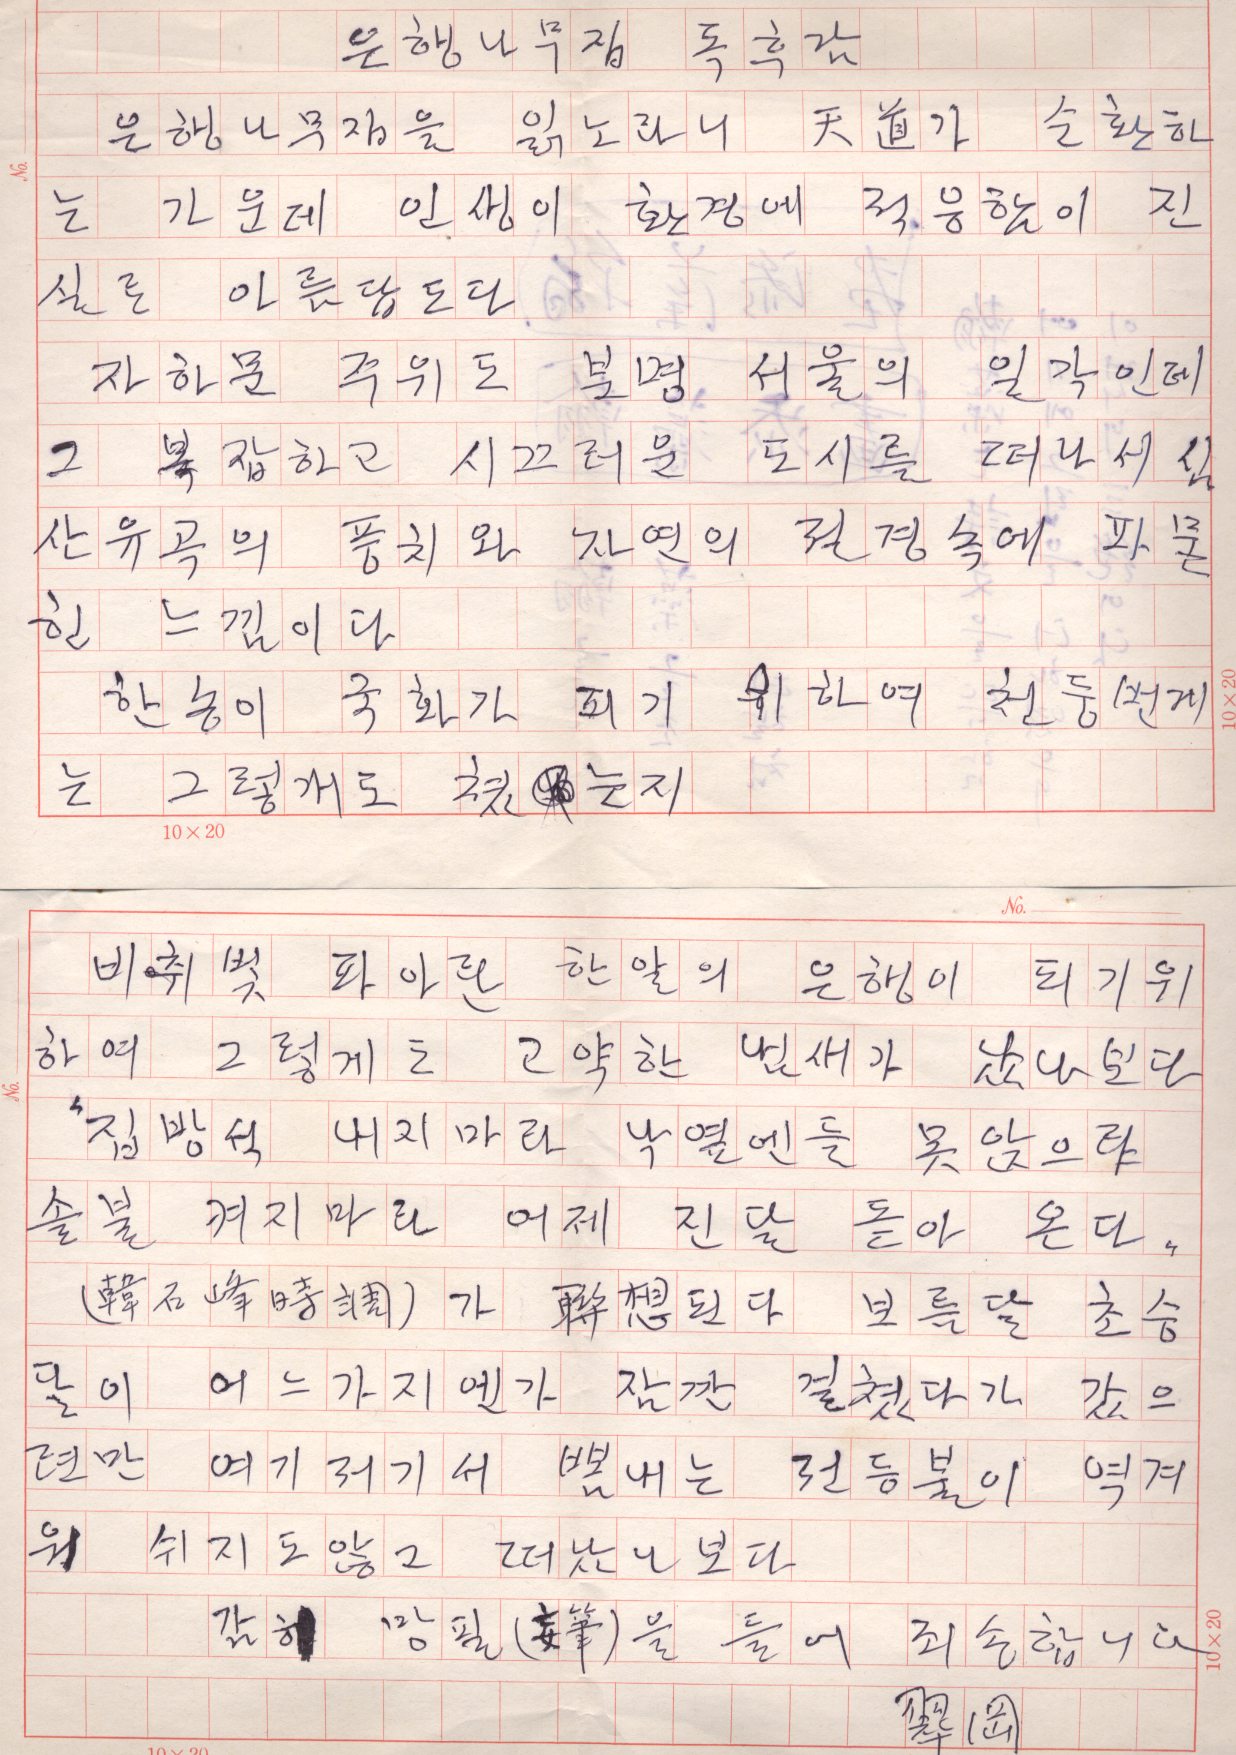 은행나무집 독후감
은행나무집을 읽노라니 天道가 순환하
는 가운데 인생이 환경에 적응함이 진
실로 아름답도다
자하문 주위도 분명 서울의 일각인데
그 복잡하고 시끄러운 도시를 떠나서 심
산유곡의 풍치와 자연의 절경속에 파묻
힌 느낌이다
한송이 국화가 피기 위하여 천둥번게
는 그렇개도 쳤는지
No.
10×20
10×20
No.
비취빛 파아란 한알의 은행이 되기위
하여 그렇게도 고약한 냄새가 났나보다
"집방석 내지마라 낙옆엔들 못앉으랴
솔불 켜지마라 어제 진달 돋아 온다"
(韓石峰時調)가 聯想된다 보름달 초승
달이 어느가지엔가 잠깐 걸쳤다가 갔으
련만 여기저기서 뽐내는 전등불이 역겨
워 쉬지도않고 떠났나보다
감히 망필(妄筆)을 들어 죄송합니다
翠岡
No.
10×20
10×20